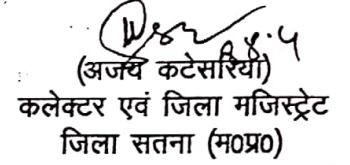 (अजय कटेसरिया)
कलेक्टर एवं जिला मजिस्ट्रेट
जिला सतना (म०प्र०)